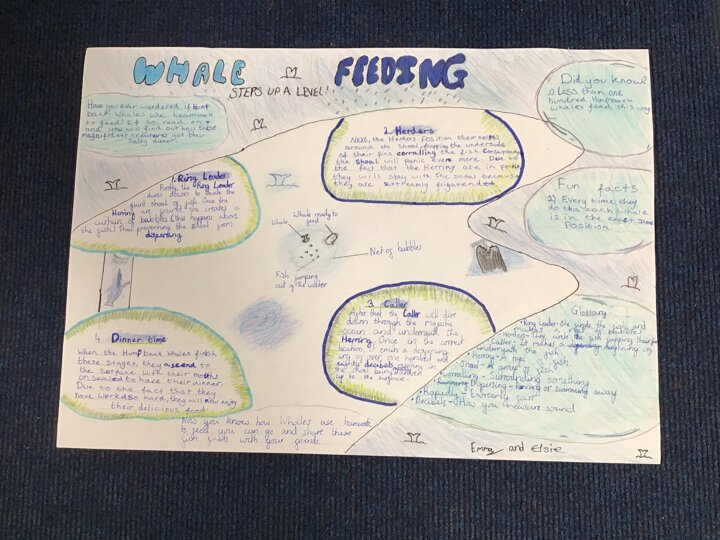 WHALE FEEDING
STEPS UP A LEVEL!
Have you ever wondered if Hump
back Whales use teamwork
to feed? If so, read on
and you will find out how these
magnificent creatures get their
Salty dinner.
Did you know?
1) Less than one
hundred Humpback
whales feed this way.
1. Ring Leader
Firstly, the Ring Leader
dives down to locate the
giant shoal of fish. Once the
Herring are found she creates a
curtain of bubbles (this happens above
the fish) Thus, preventing the shoal from
dispersing.
2. Herders
Next, the Herders Position themselves
around the shoal, flapping the underside
of their fins corralling the fish. Consequently
the shoal will panic even more. Due to
the fact that the Herring are in
they will stay with the shoal because
they are extremely frightended.
Fun facts
2) Every time they
do this each whale
is in the exact same
Position.
Whale
Whale ready to
feed
Net of bubbles
Fish jumping
out of the water
3. Caller
After that, the Caller will dive
down through the
ocean and underneath the
Herring. Once in the correct
location, it emits a deafening
cry of over one hundred and
eighty decibels, resulting in
the shoal being
up to the surface.
4. Dinner time
When the Humpback Whales finish
these stages, they ascend to
the surface with their mouths
unsealed to have their dinner.
Due to the fact that they
have worked so hard, they will now enjoy
their delicious food.
Glossary
Ring Leader- She finds the fish and
a net of bubbles.
Herders- They circle the fish
Caller- it makes a deafening cry
underneath the fish
Herring- A type of fish
Shoal- A group of fish
Corralling- Surrounding something
Dispersing- moving or swimming away
Rapidly- Extremly fast
Decibels- How you measure sound
Now you know how Whales use teamwork
to feed, you can go and share these
fun facts with your friends.
Emma and Elsie